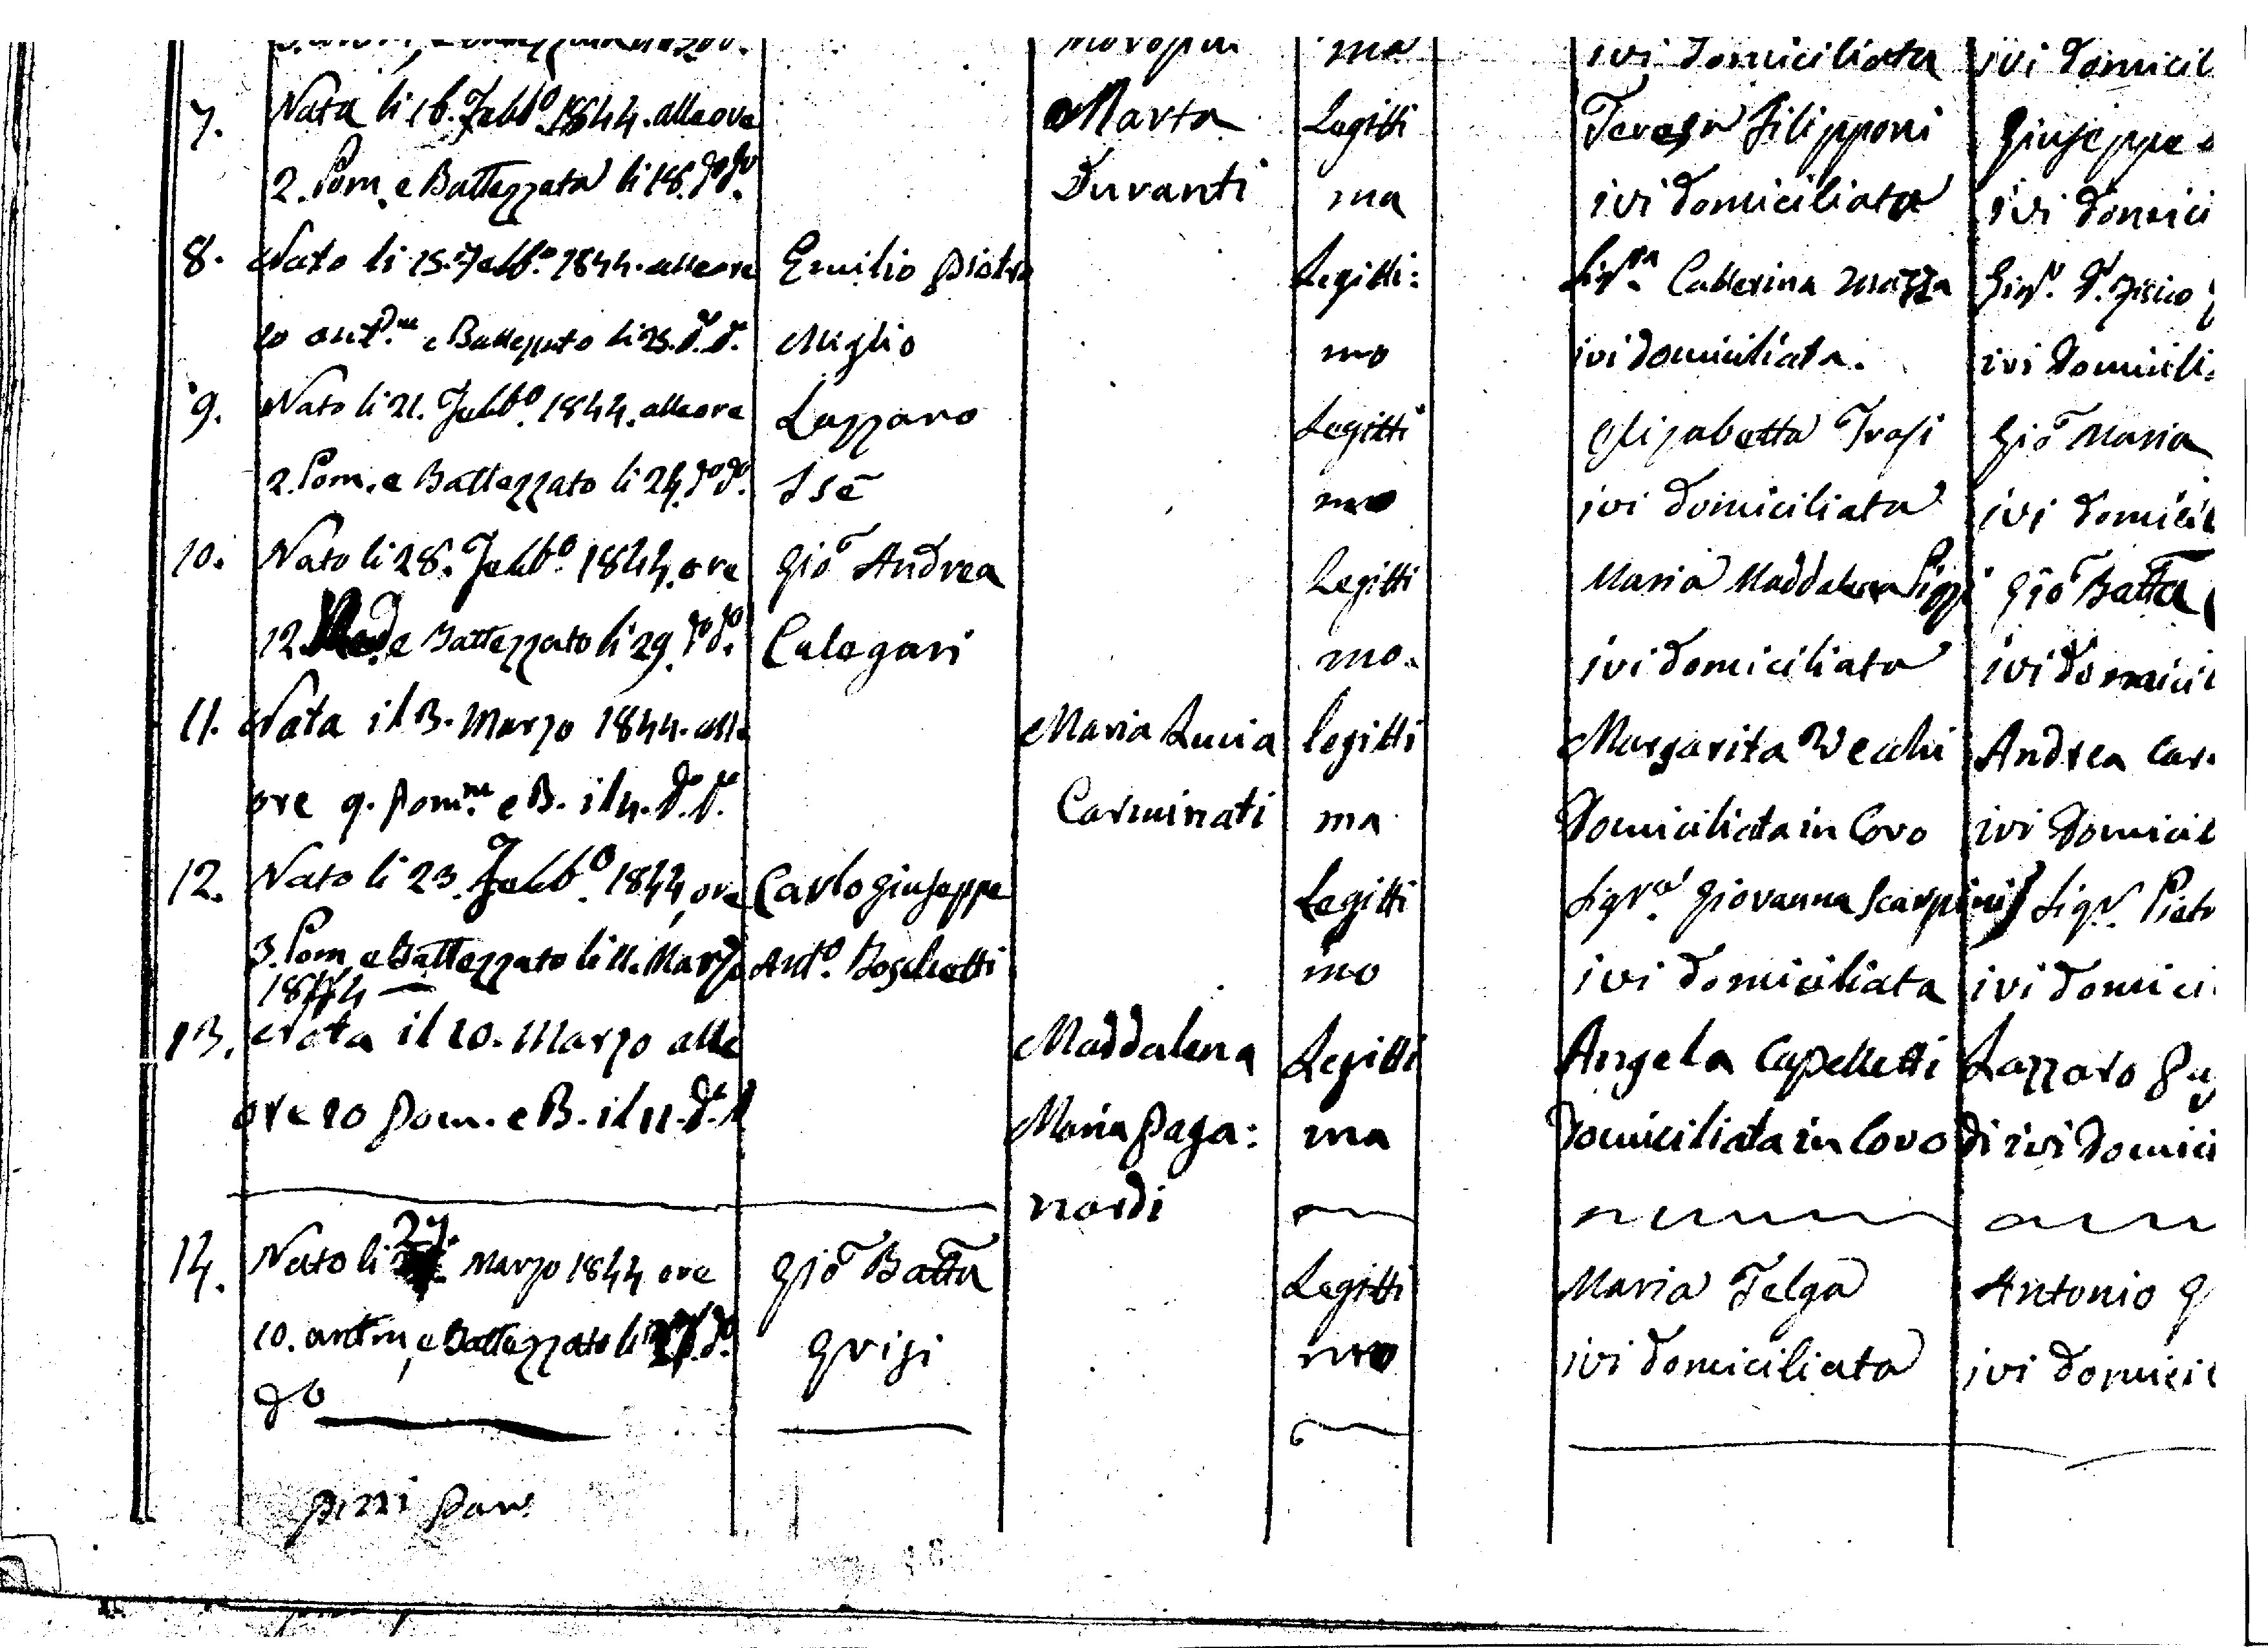 ma ivi Domiciliata ivi Domicil
7. Nata li 16. Febb.o 1844. alle ore Marta Legitti Teresa Filipponi Giuseppe
2. Pom. e Battezzata li 18. do do. Duranti ma ivi Domiciliata ivi Domici
8. Nato li 15. Febb.o 1844. alle ore Emilio Pietro Legitti: Sig.ra Catterina Mozza Sig.r
10 ant.ne e Battezzato li 23. d. d. Miglio mo ivi domiciliata. ivi Domicili
9. Nato li 21. Febb.o 1844. alle ore Lazzaro Legitti Elisabetta Gio Maria
2. Pom. e Battezzato li 24. do do. mo ivi Domiciliata ivi Domicil
10. Nato li 28. Febb.o 1844. ore Gio Andrea Legitti Maria Maddalena Gio Batta
12. e Battezzato li 29. do do. Calegari mo. ivi Domiciliata ivi Domicil
11. Nata il 3. Marzo 1844. alle Maria Lucia legitti Margarita Vecchi Andrea Car
ore 9. Pom.ne e B. il 4. d. d. Carminati ma Domiciliata in Covo ivi Domicil
12. Nato li 23. Febb.o 1844, ore Carlo Giuseppe Legitti Sigr.a Giovanna Scarpini Sigr. Pietr
3. Pom. e Battezzato li 11. Marzo Ant.o Boschetti mo ivi Domiciliata ivi Domici
1844
13. Nata il 10. Marzo alle Maddalena Legitti Angela Capelletti Lazzaro Pag
ore 10 Pom. e B. il 11. d. d. Maria Paga: ma Domiciliata in Covo di ivi Domici
nardi
27.
14. Nato li Marzo 1844 ore Gio Batta Legitti Maria Telga Antonio G
10. antm, e Battezzato li 27. do Grisi mo ivi Domiciliata ivi Domicil
do